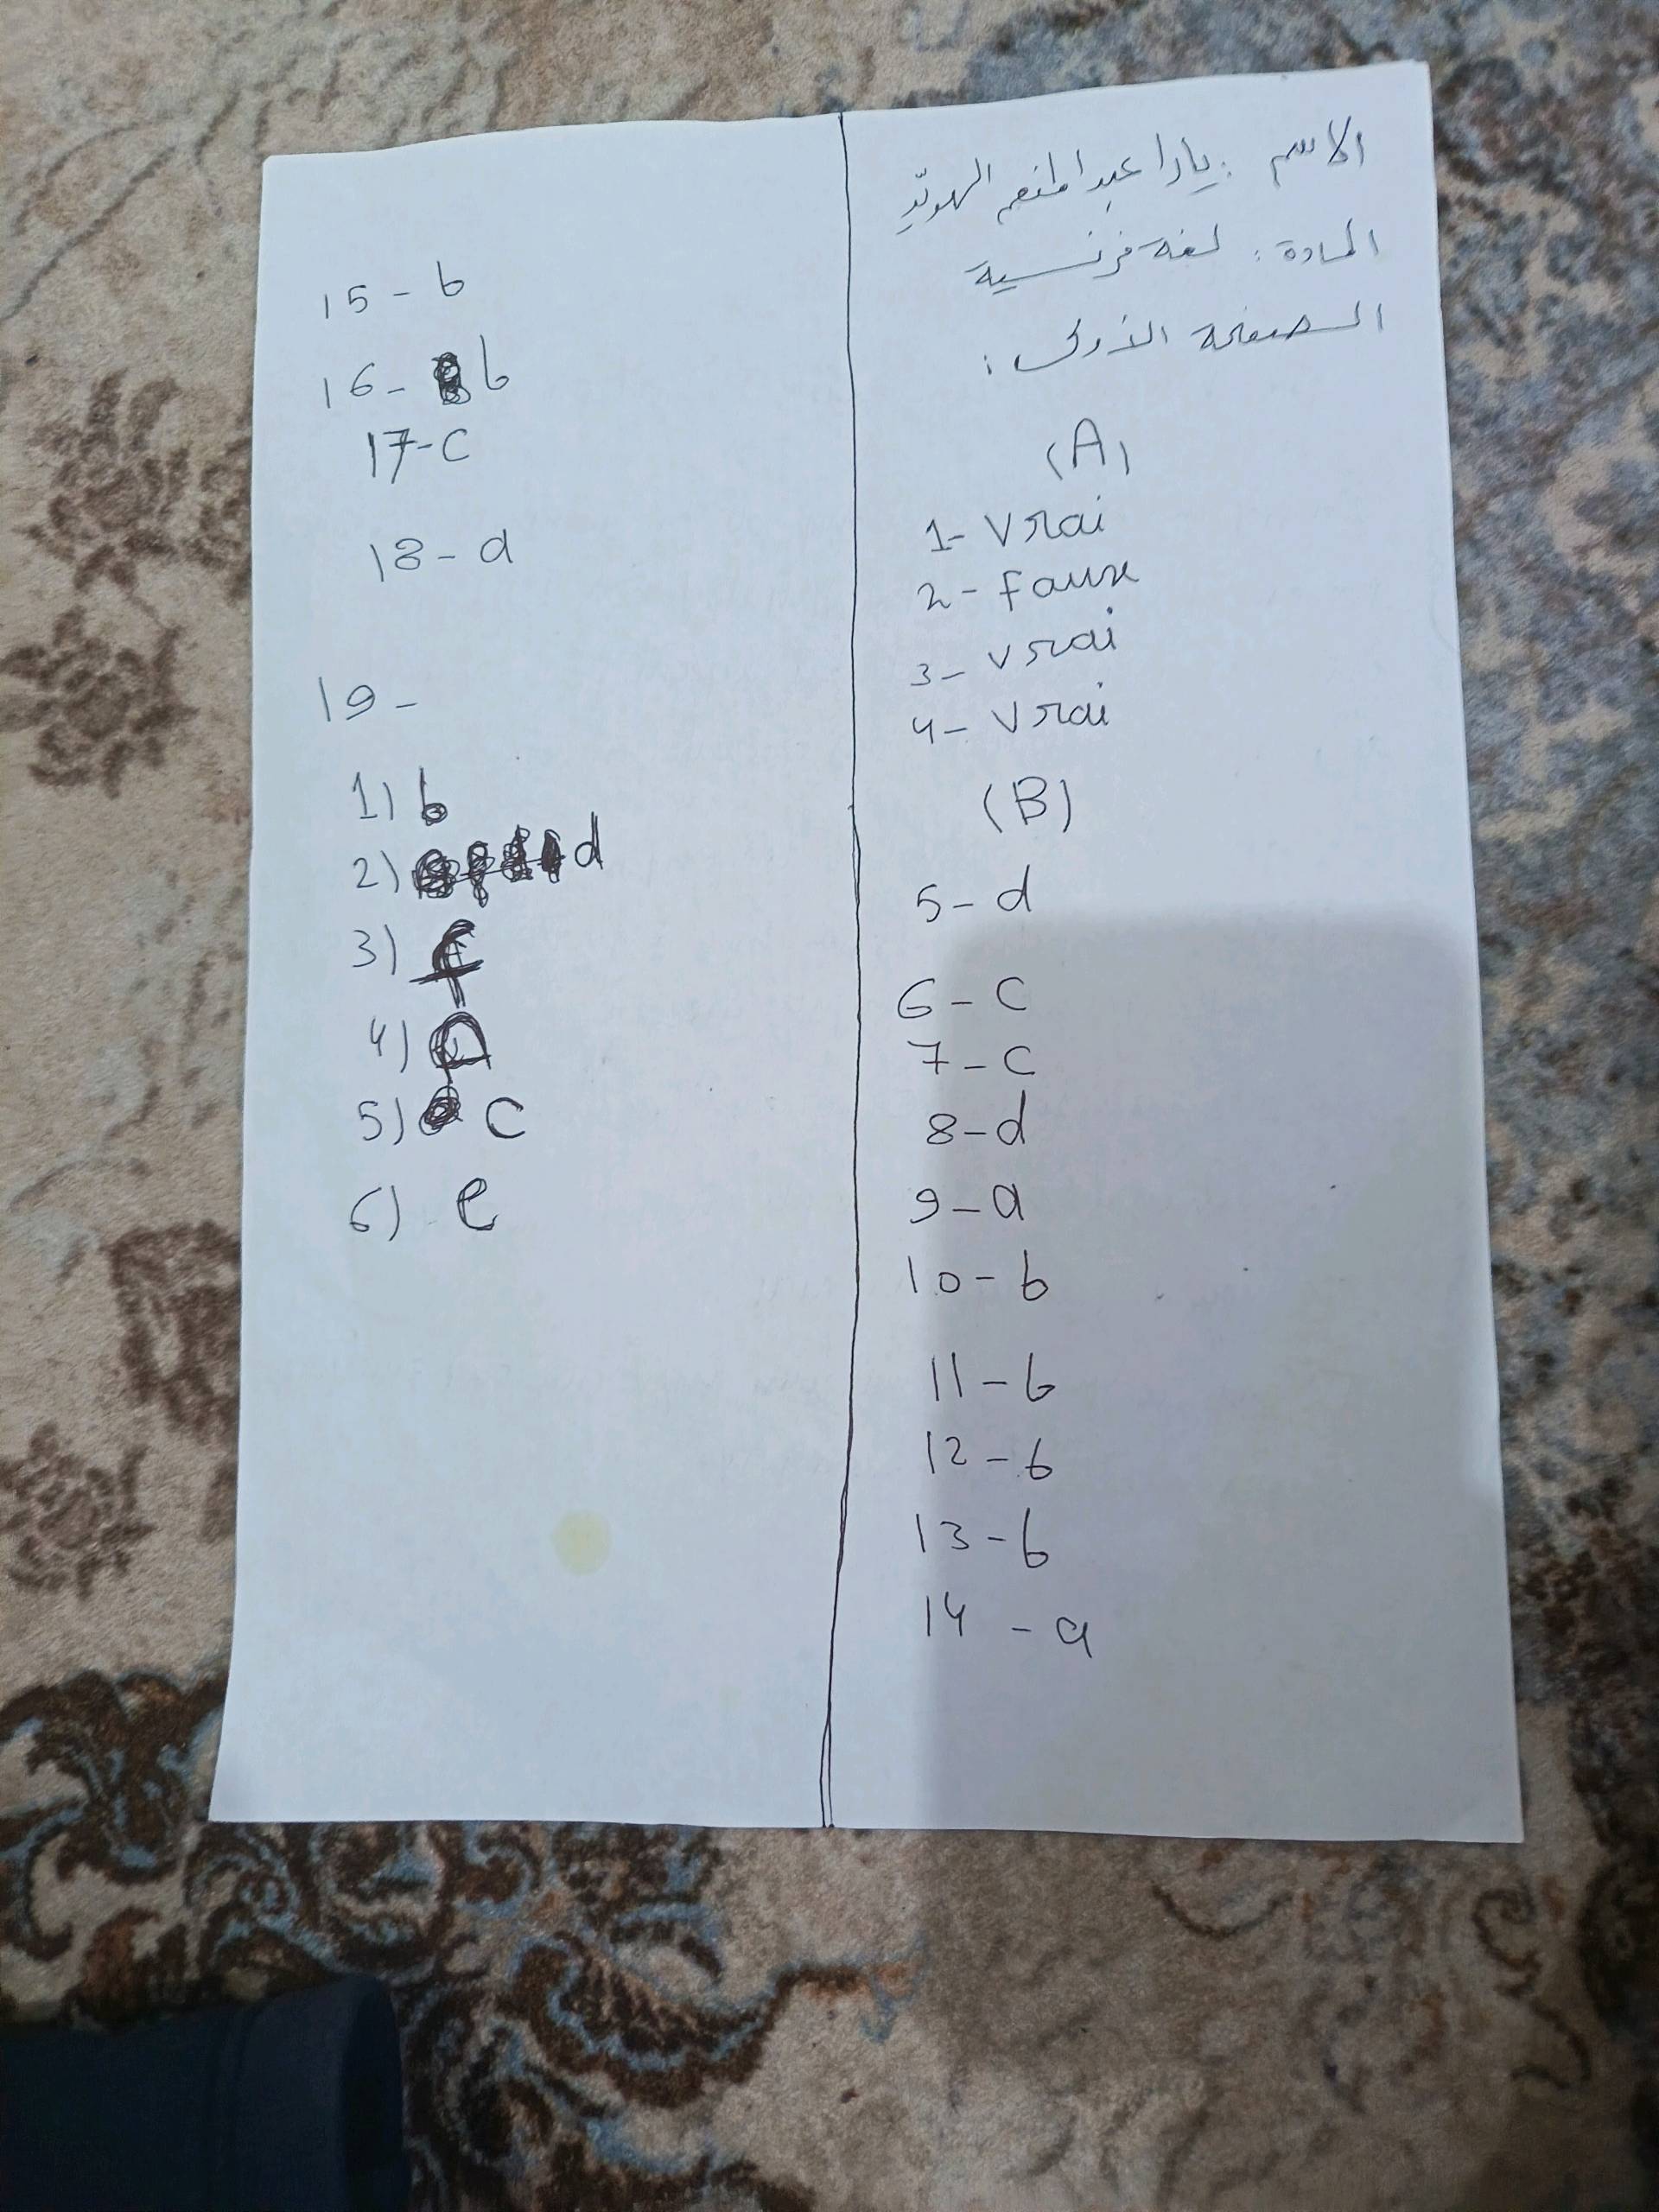 الاسم : يارا عبد المنعم الهويّد
المادة : لغة فرنسية
الصفحة الأولى :
(A)
1- Vrai
2- faux
3- vrai
4- Vrai
(B)
5- d
6- c
7- c
8- d
9- a
10- b
11- b
12- b
13- b
14 - a
15- b
16- b
17- c
18- d
19-
1) b
2) d
3) f
4) a
5) c
6) e